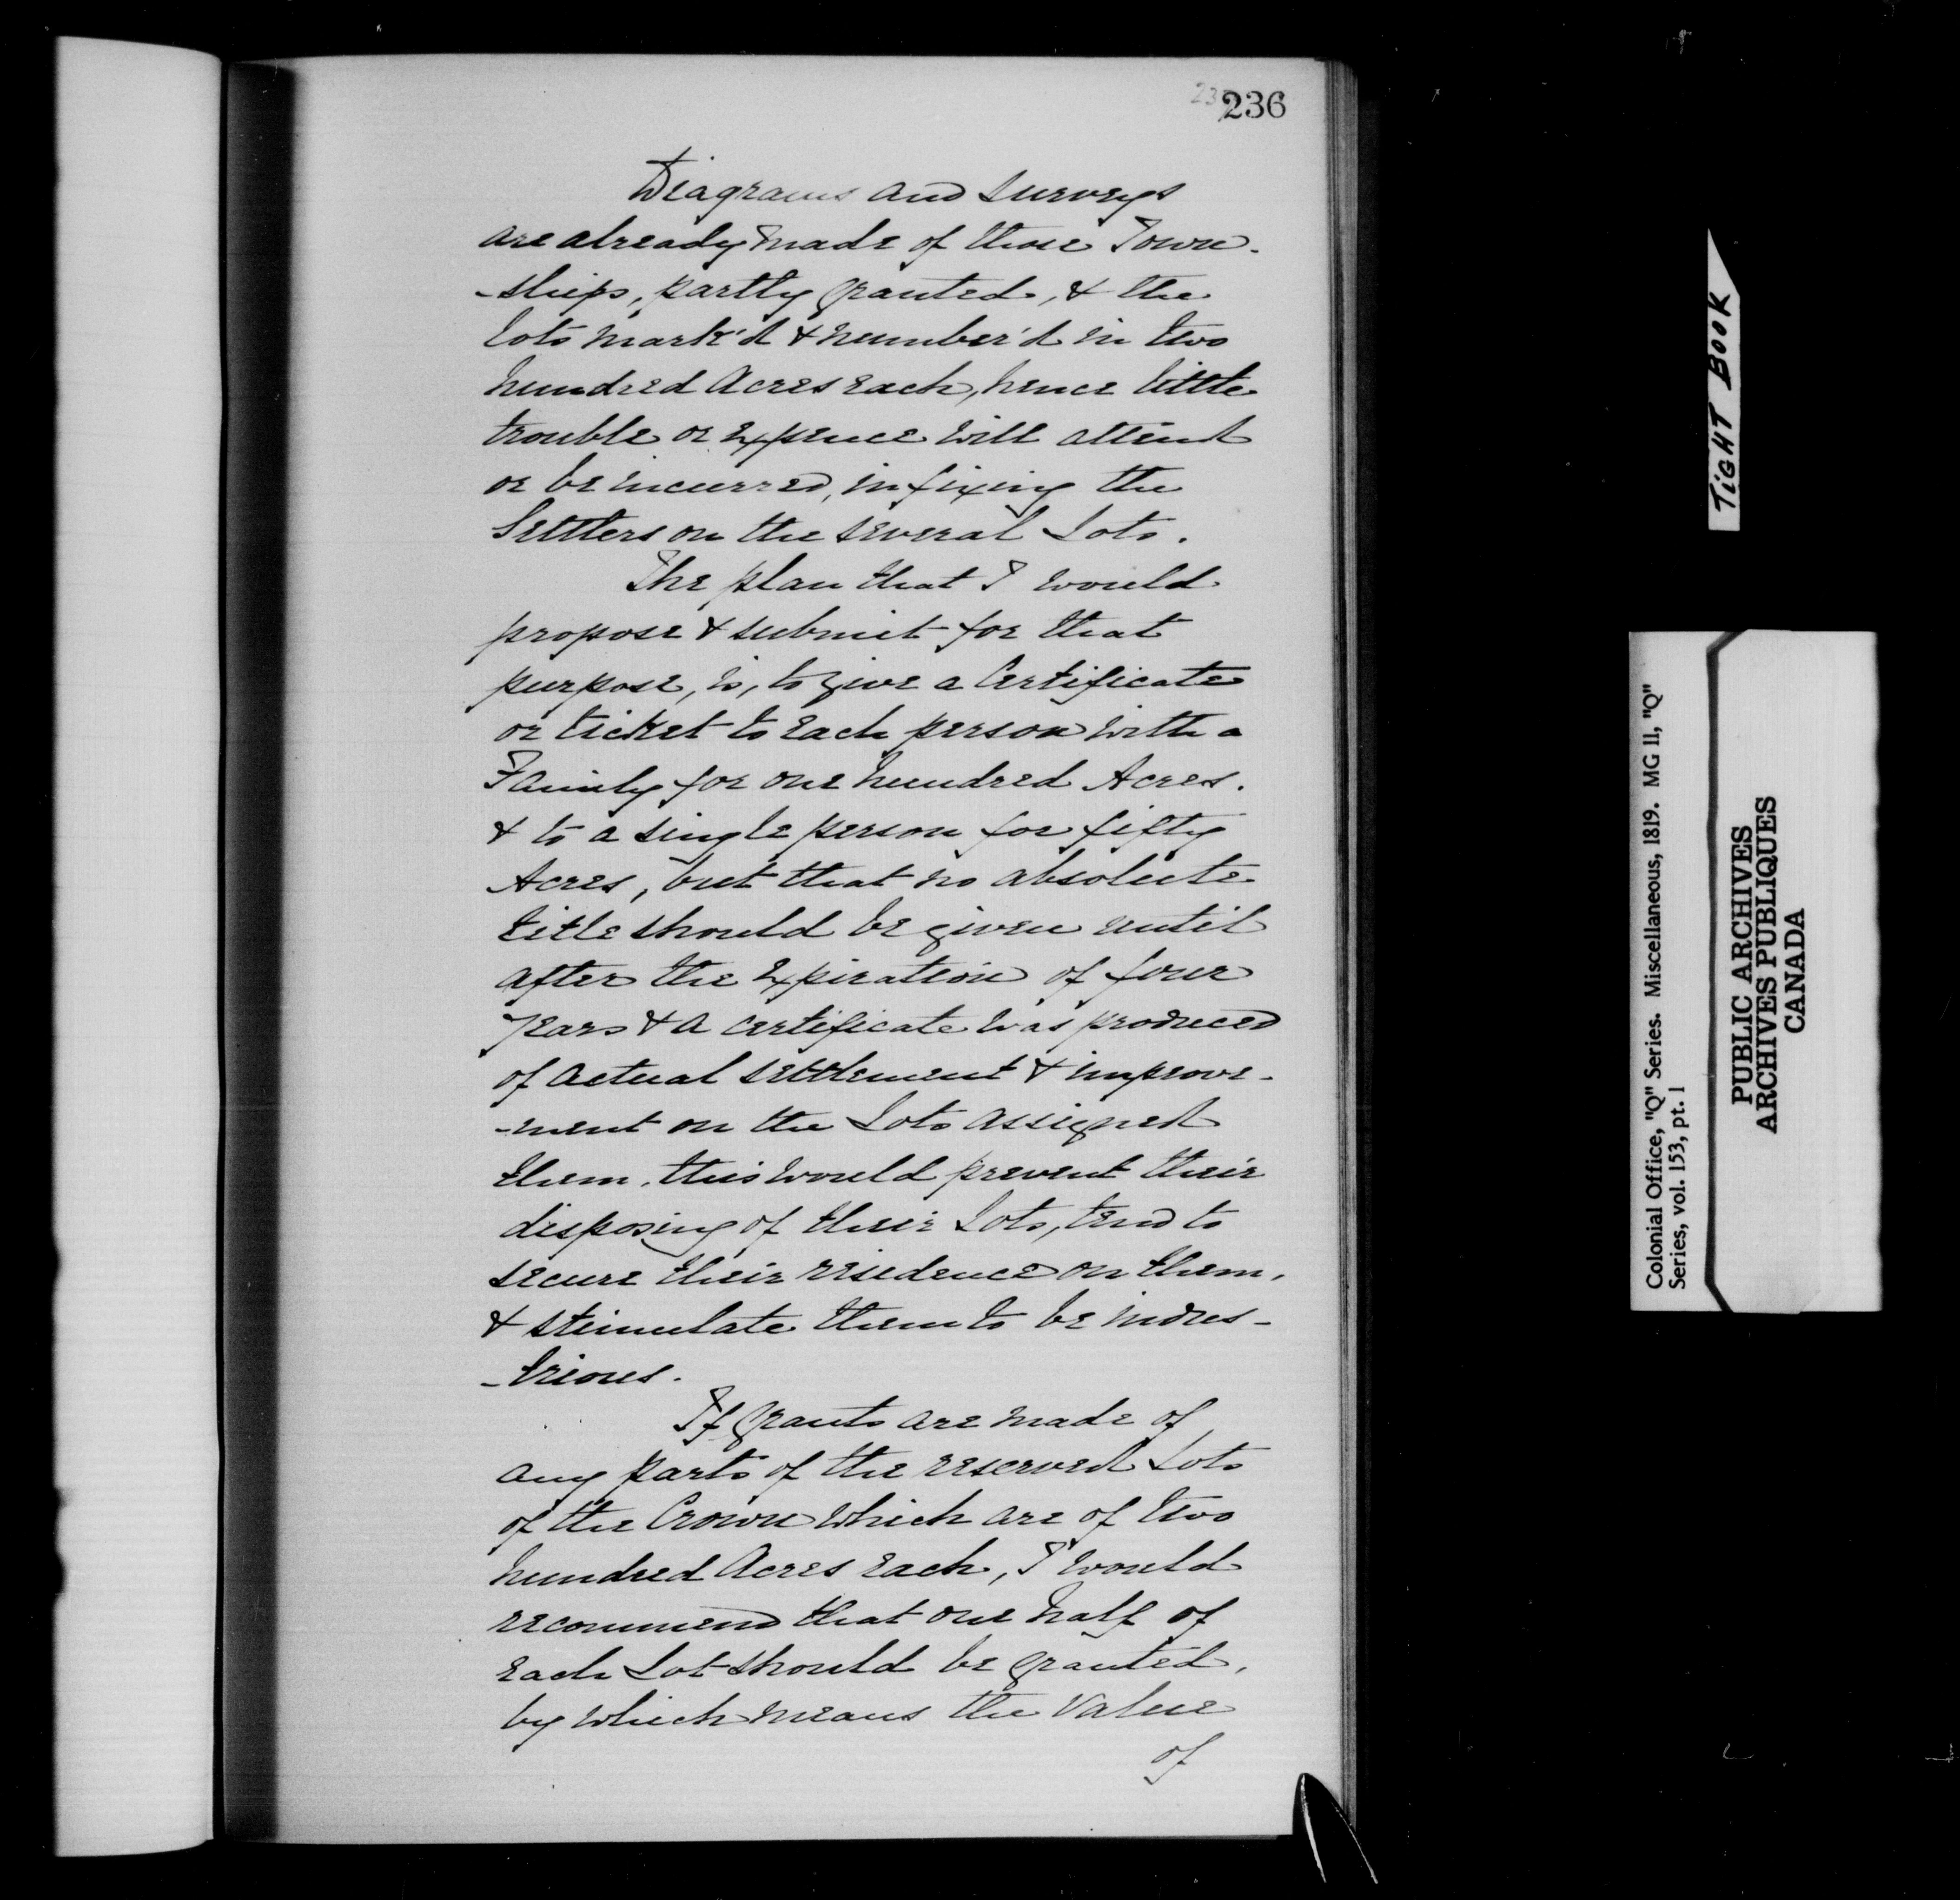 236
Diagrams and surveys
are already made of those Town-
-ships, partly granted, & the
lots mark'd & number'd in two
hundred Acres each, hence little
trouble or expence will attend
or be incurred, in fixing the
Settlers on the several Lots.
The plan that I would
propose & submit for that
purpose, is, to give a Certificate
or ticket to each person with a
Family for one hundred Acres.
& to a single person for fifty
Acres, but that no absolute
title should be given until
after the expiration of four
years & a certificate was produced
of actual settlement & improve-
-ment on the Lots assigned
them, this would prevent their
disposing of their Lots, tend to
secure their residence on them,
& stimulate them to be indus-
-trious.
If grants are made of
any parts of the reserved Lots
of the Crown which are of two
hundred Acres each, I would
recommend that one half of
each Lot should be granted,
by which means the value
of
TIGHT BOOK
Colonial Office, "Q" Series. Miscellaneous, 1819. MG 11, "Q"
Series, vol. 153, pt. 1
PUBLIC ARCHIVES
ARCHIVES PUBLIQUES
CANADA